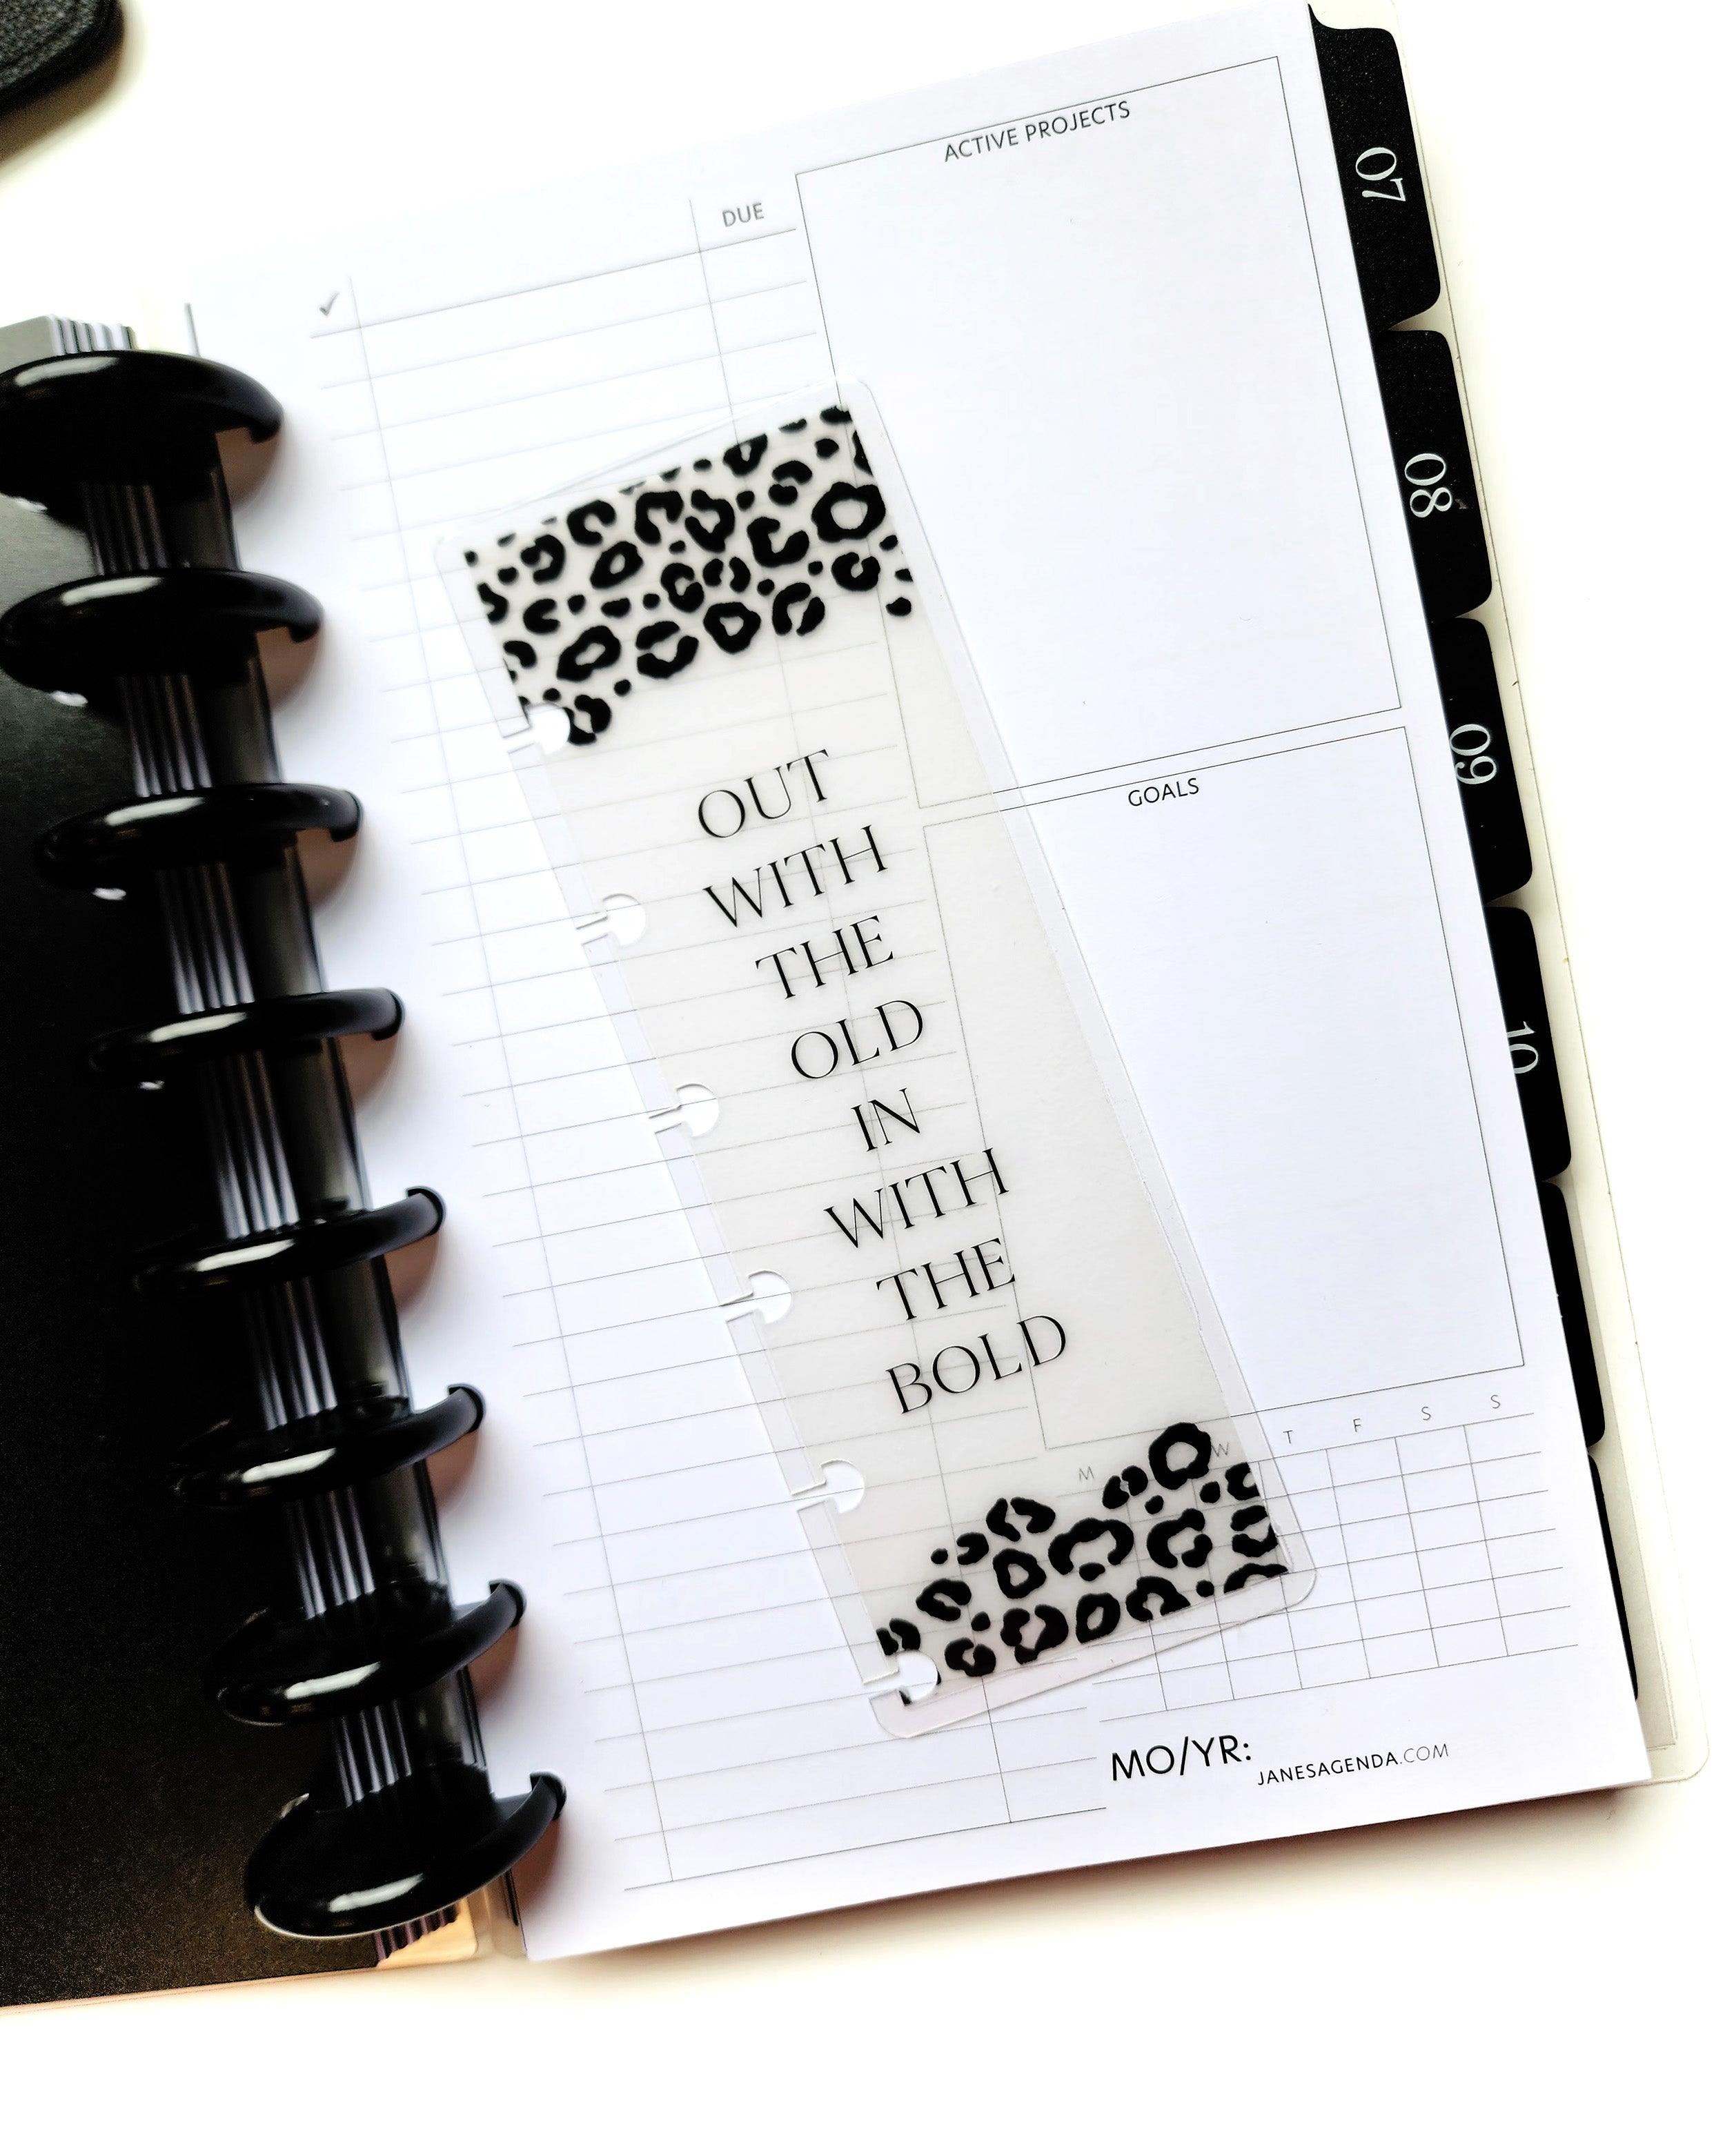 ACTIVE PROJECTS
DUE
✓
07
08
09
10
OUT
WITH
THE
OLD
IN
WITH
THE
BOLD
GOALS
M W T F S S
MO/YR:
JANESAGENDA.COM